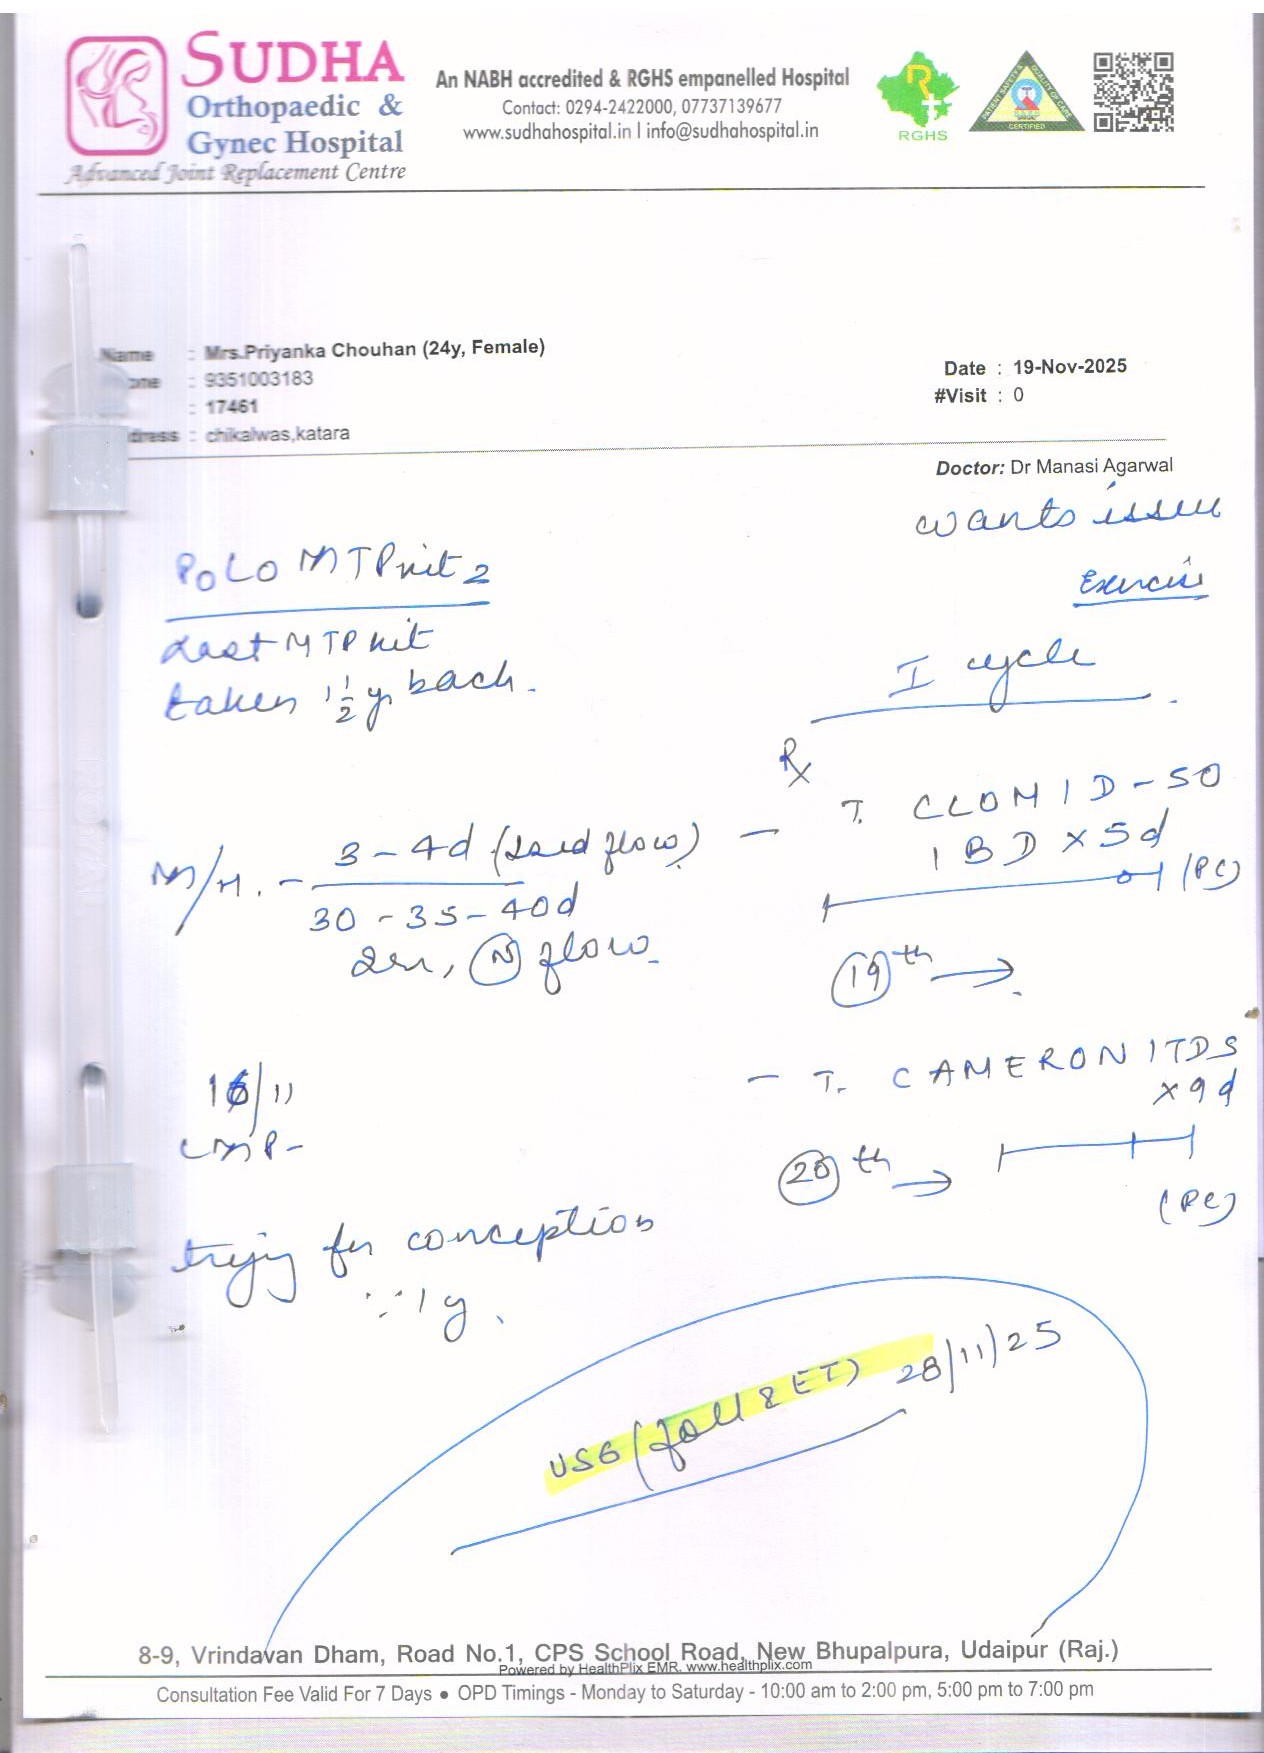 SUDHA
Orthopaedic &
Gynec Hospital
Advanced Joint Replacement Centre
An NABH accredited & RGHS empanelled Hospital
Contact: 0294-2422000, 07737139677
www.sudhahospital.in I info@sudhahospital.in
RGHS
PATIENT SAFETY & QUALITY OF CARE
CERTIFIED
Name : Mrs.Priyanka Chouhan (24y, Female)
one : 9351003183
: 17461
dress : chikalwas,katara
Date : 19-Nov-2025
#Visit : 0
Doctor: Dr Manasi Agarwal
wants issue
Exercise
P0L0 MTP kit 2
Last MTP kit
taken 1 1/2 y back.
I cycle
Rx
T. CLOMID-50
1 BD x 5d
(PC)
19th →
M/H. - 3-4d ( flow)
30-35-40d
N flow
- T. CAMERON 1TDS
x 9d
20th →
(PC)
16/11
LMP-
trying for conception
1y.
USG (foll & ET) 28/11/25
8-9, Vrindavan Dham, Road No.1, CPS School Road, New Bhupalpura, Udaipur (Raj.)
Powered by HealthPlix EMR. www.healthplix.com
Consultation Fee Valid For 7 Days ● OPD Timings - Monday to Saturday - 10:00 am to 2:00 pm, 5:00 pm to 7:00 pm